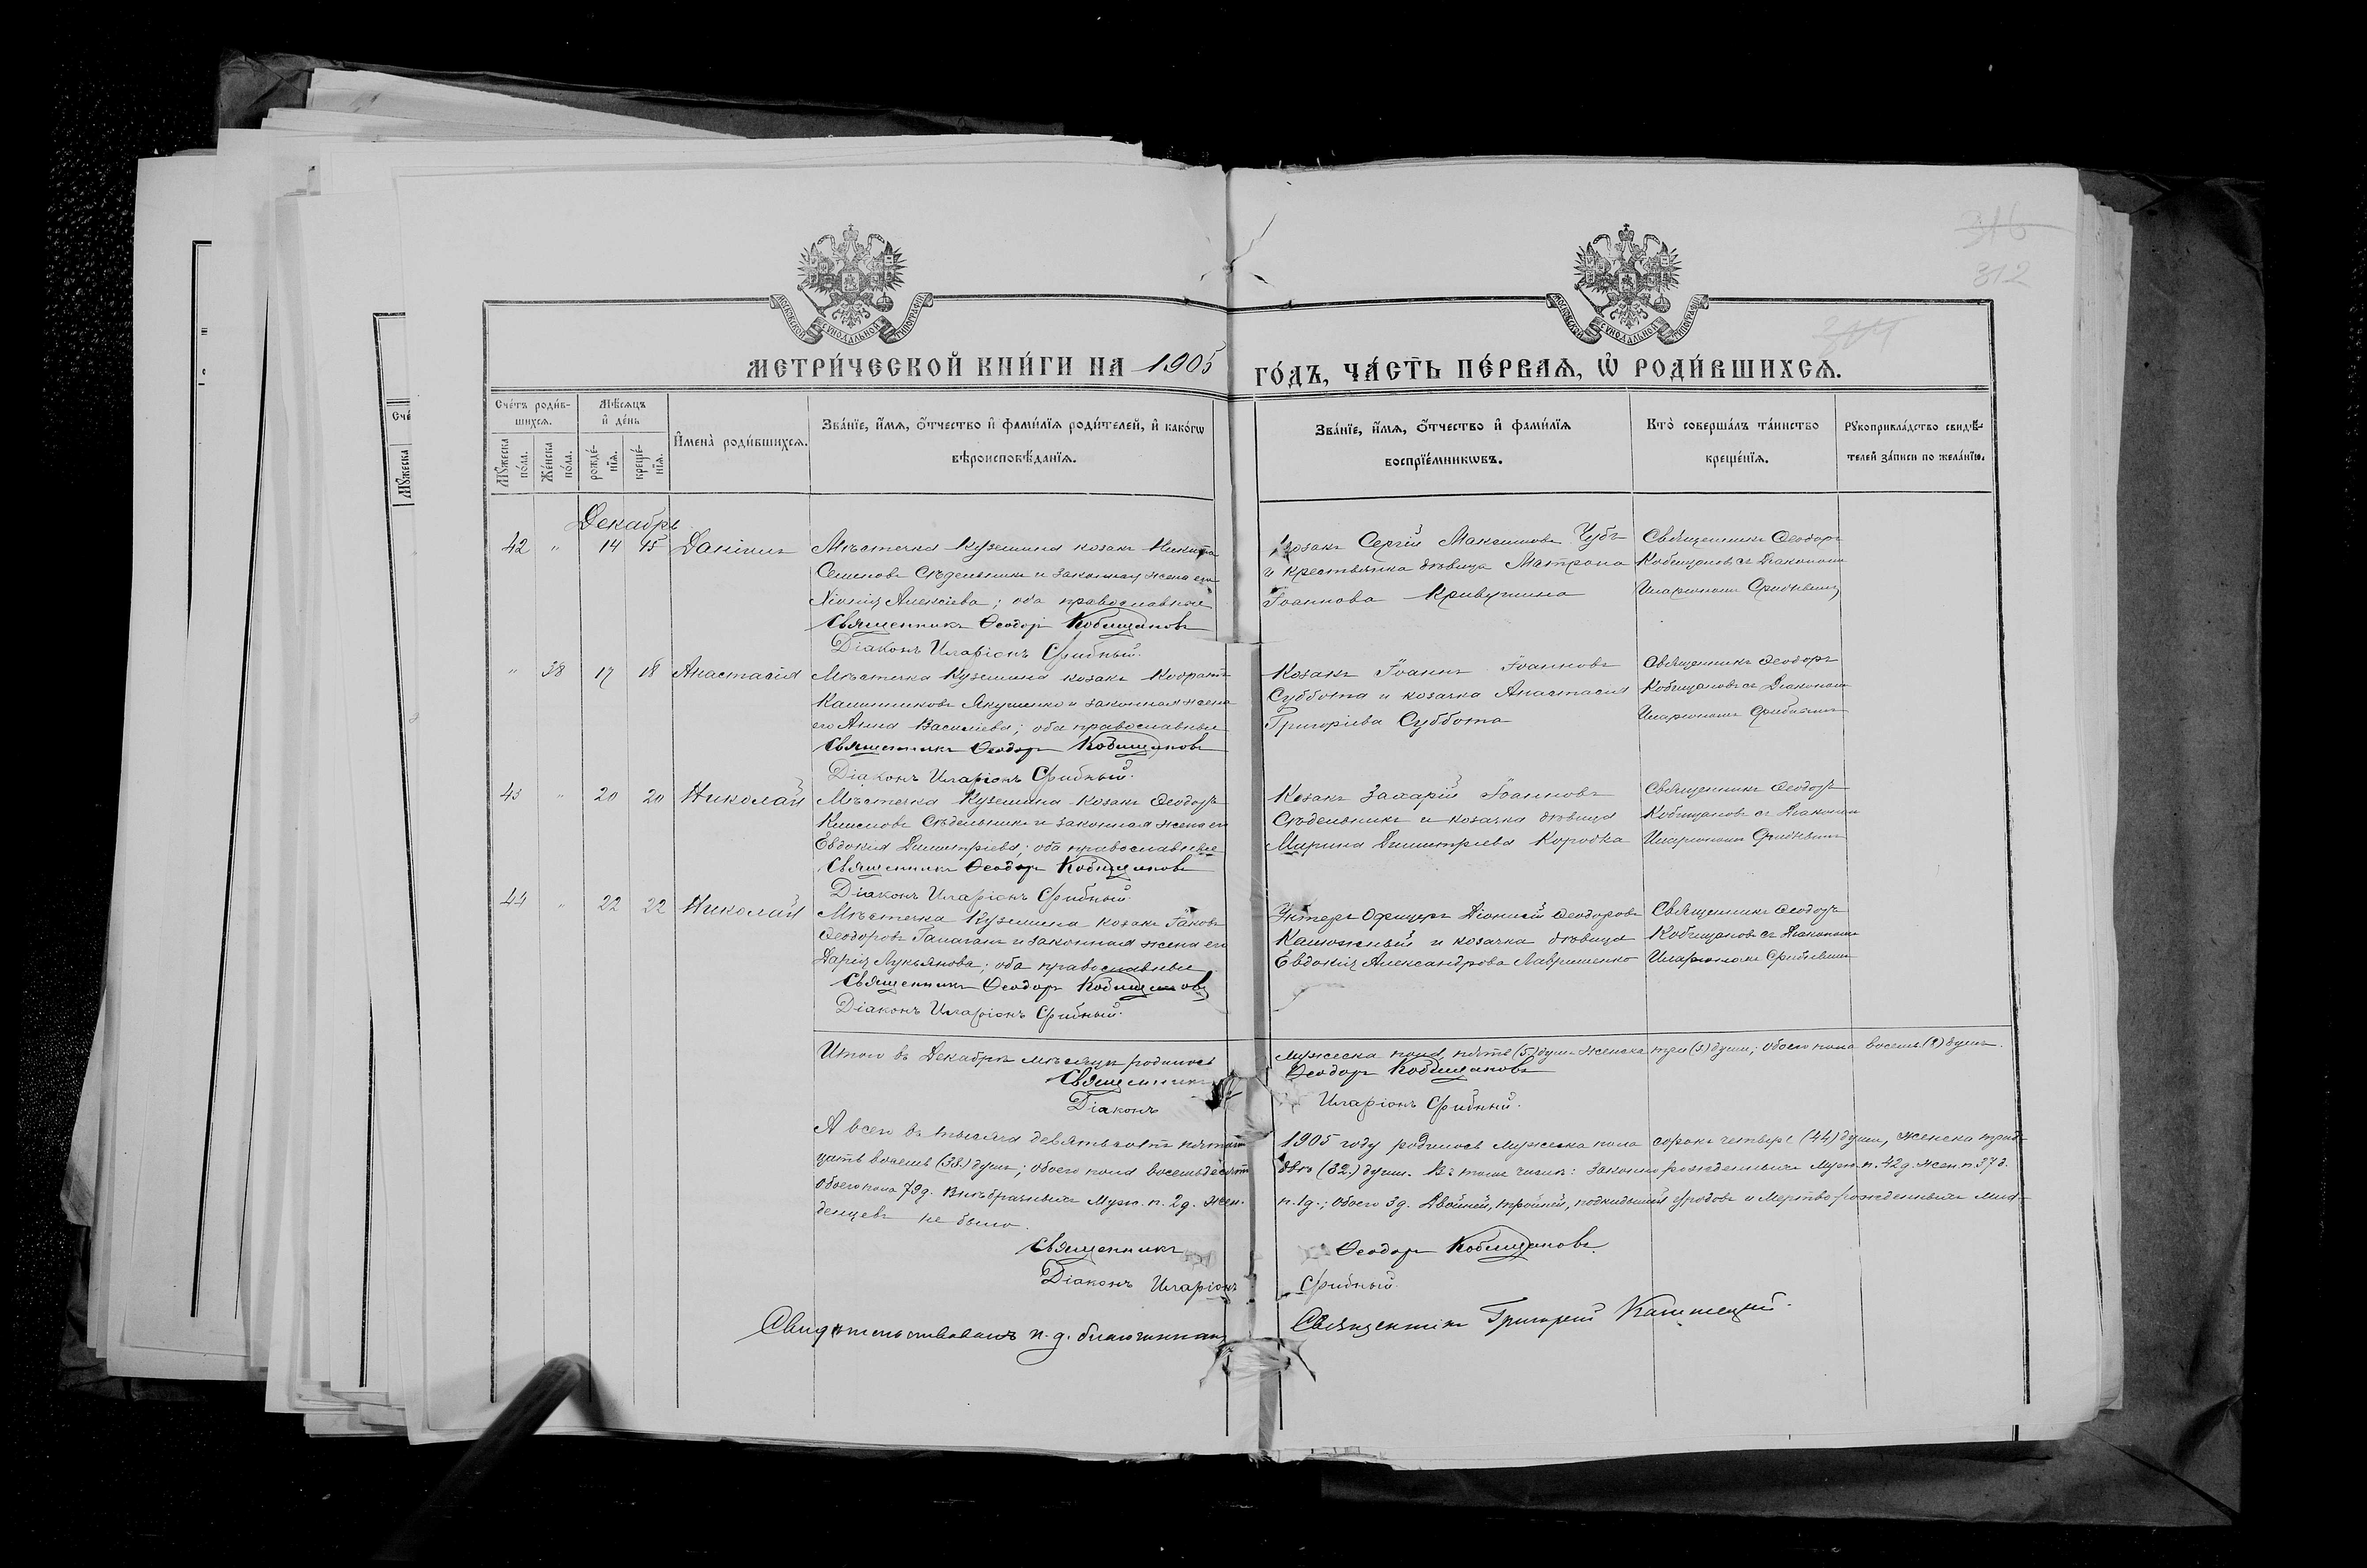 316
312
304
МОСКОВСКОЙ СѴНОДАЛЬНОЙ ТИПОГРАФІИ
МОСКОВСКОЙ СѴНОДАЛЬНОЙ ТИПОГРАФІИ
МЕТРИ́ЧЕСКОЙ КНИ́ГИ НА 1905 ГО́ДЪ, ЧА́СТЬ ПЕ́РВАѦ, Ѡ҆ РОДИ́ВШИХСѦ.
Сче́тъ роди́в-
шихсѧ.
Мꙋ́жеска по́ла.
Же́нска по́ла.
Мѣ́сѧцъ
и҆ де́нь
рожде́-нїѧ.
креще́-нїѧ.
И҆мена̀ роди́вшихсѧ.
Зва́нїе, и҆́мѧ, ѻ҆́тчество и҆ фами́лїѧ роди́телей, и҆ како́гѡ
вѣроисповѣ́данїѧ.
Зва́нїе, и҆́мѧ, ѻ҆́тчество и҆ фами́лїѧ
воспрїе́мникѡвъ.
Кто̀ соверша́лъ та́инство
креще́нїѧ.
Рꙋкоприкла́дство свидѣ́-
телей за́писи по жела́нїю.
Сче́
Мꙋ́жеска
Декабрь
42 " 14 15 Даніилъ Мѣстечка Куземина козакъ Никита
Семеновъ Сѣдельникъ и законная жена его
Алексіева; оба православные
Священникъ Ѳеодоръ Кобищановъ
Діаконъ Иларіонъ Срибный.
Козакъ Сергій Максимовъ Чубъ
и крестьянка дѣвица Матрона
Іоаннова Кривушина
Священникъ Ѳеодоръ
Кобищановъ съ Діакономъ
Иларіономъ Срибнымъ
" 38 17 18 Анастасія Мѣстечка Куземина козакъ Кодратъ
Калинниковъ Якушенко и законная жена
его Анна Василіева; оба православные
Священникъ Ѳеодоръ Кобищановъ
Діаконъ Иларіонъ Срибный.
Козакъ Іоаннъ Іоанновъ
Суббота и козачка Анастасія
Григоріева Суббота
Священникъ Ѳеодоръ
Кобищановъ съ Діакономъ
Иларіономъ Срибнымъ
43 " 20 20 Николай Мѣстечка Куземина козакъ Ѳеодоръ
Климовъ Сѣдельникъ и законная жена его
Евдокия Димитріева; оба православные
Священникъ Ѳеодоръ Кобищановъ
Діаконъ Иларіонъ Срибный.
Козакъ Захарій Іоанновъ
Сѣдельникъ и козачка дѣвица
Марина Димитріева Коробка
Священникъ Ѳеодоръ
Кобищановъ съ Діакономъ
Иларіономъ Срибнымъ
44 " 22 22 Николай Мѣстечка Куземина козакъ Іаковъ
Ѳеодоровъ Галаганъ и законная жена его
Дарія Лукьянова; оба православные
Священникъ Ѳеодоръ Кобищановъ
Діаконъ Иларіонъ Срибный.
Унтеръ Офицеръ Діонисій Ѳеодоровъ
Калюжный и козачка дѣвица
Евдокія Александрова Лавриненко
Священникъ Ѳеодоръ
Кобищановъ съ Діакономъ
Иларіономъ Срибнымъ
Итого въ Декабрѣ мѣсяцѣ родилось мужеска пола пять (5) душъ женска три (3) души; обоего пола восемь (8) душъ.
Священникъ Ѳеодоръ Кобищановъ
Діаконъ Иларіонъ Срибный.
А всего въ тысяча девятьсотъ пятомъ 1905 году родилось мужеска пола сорокъ четыре (44) души, женска трид-
цать восемь (38) душъ; обоего пола восемьдесятъ двѣ (82) души. Въ томъ числѣ: законнорожденныхъ Муж. п. 42 д. жен. п. 37 д.
Обоего пола 79 д. Внѣбрачныхъ Муж. п. 2 д. Жен. п. 1 д.; Обоего 3 д. Двойней, тройней, подкидышей уродовъ и мертворожденныхъ мла-
денцевъ не было.
Священникъ Ѳеодоръ Кобищановъ
Діаконъ Иларіонъ Срибный.
Свидѣтельствовалъ и. д. благочиннаго Священникъ Григорій